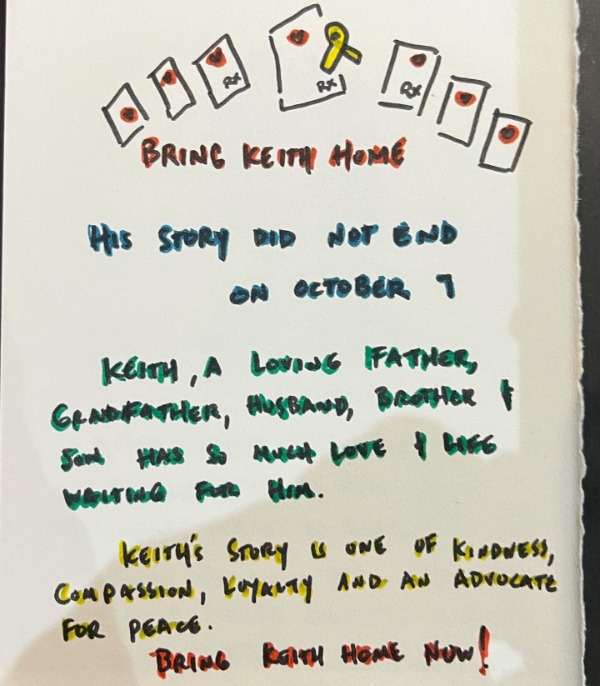 Rx Rx Rx
BRING KEITH HOME
HIS STORY DID NOT END
ON OCTOBER 7
KEITH, A LOVING FATHER,
GRANDFATHER, HUSBAND, BROTHER &
SON HAS SO MUCH LOVE & LIFE
WAITING FOR HIM.
KEITH'S STORY IS ONE OF KINDNESS,
COMPASSION, LOYALTY AND AN ADVOCATE
FOR PEACE.
BRING KEITH HOME NOW!